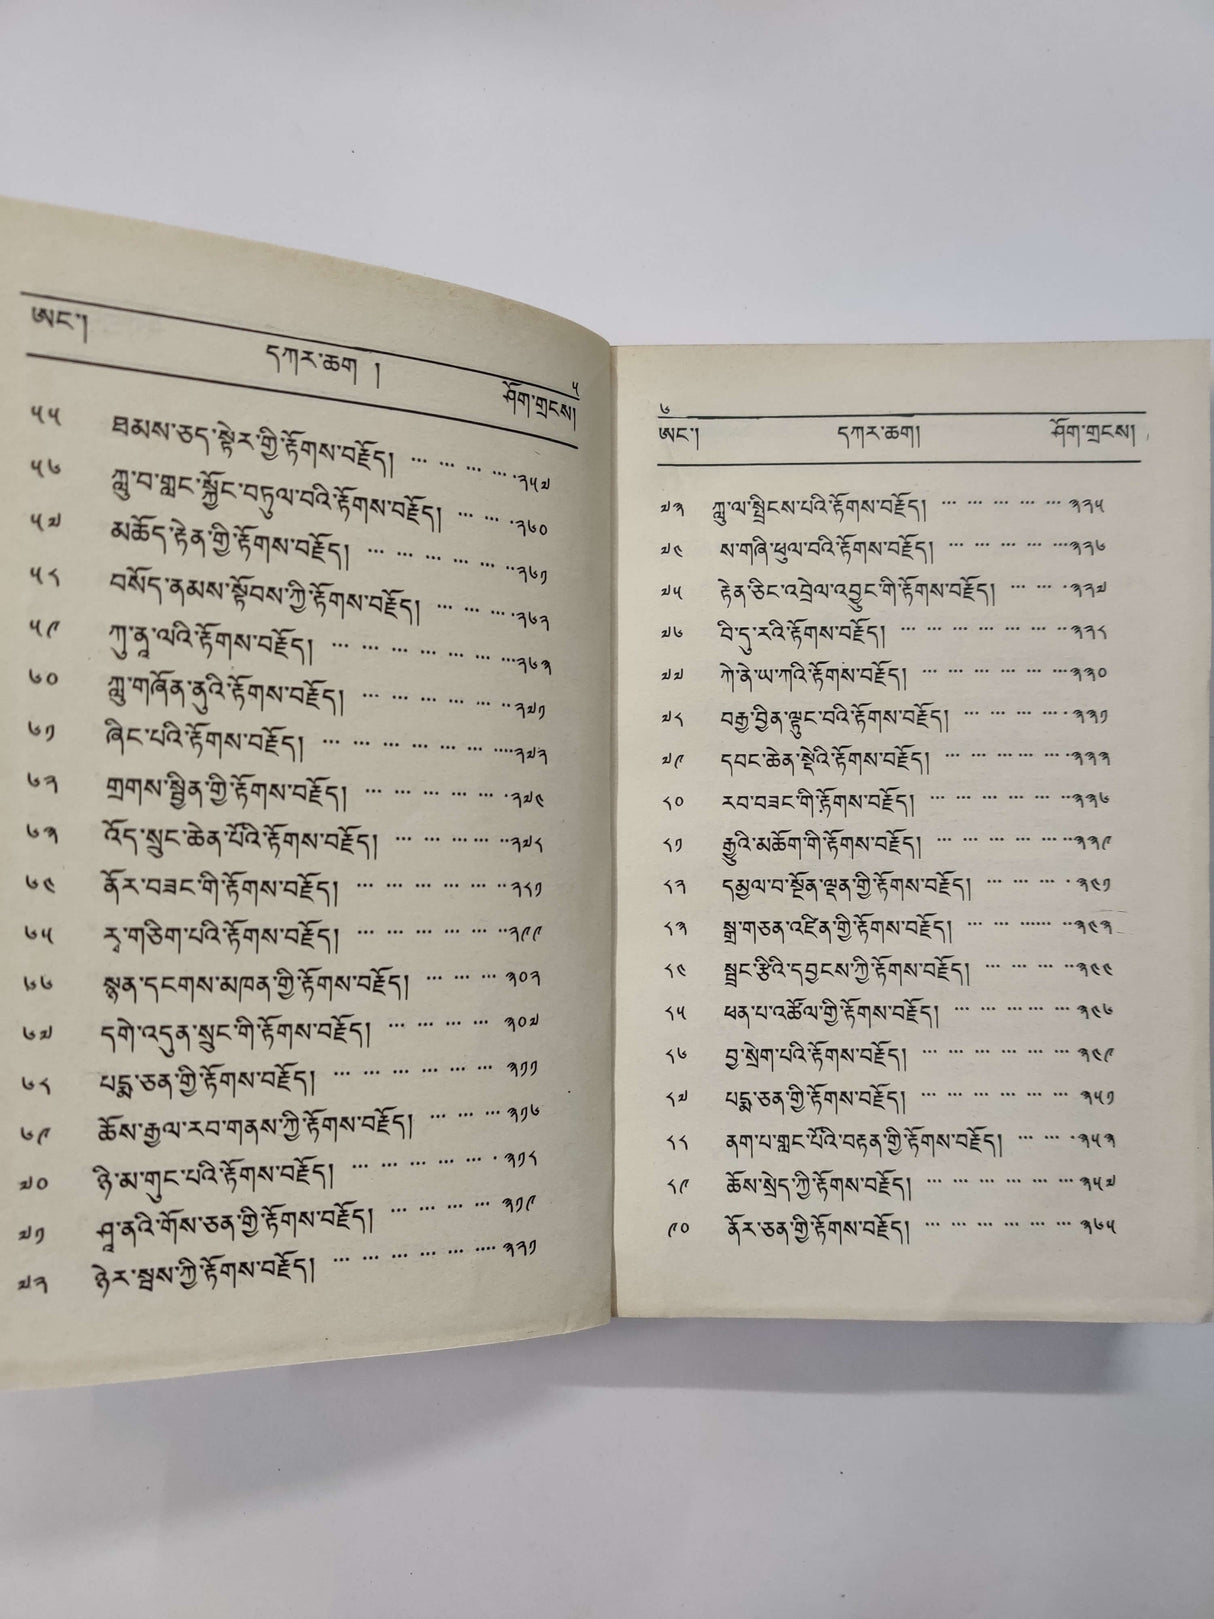 ༥
ཨང་། དཀར་ཆག ། ཤོག་གྲངས།
༥༥ ཐམས་ཅད་སྟེར་གྱི་རྟོགས་བརྗོད། ... ... ... ... ༢༥༧
༥༦ ཀླུ་བ་གླང་སྐྱོང་བཏུལ་བའི་རྟོགས་བརྗོད། ... ... ༢༦༠
༥༧ མཆོད་རྟེན་གྱི་རྟོགས་བརྗོད། ... ... ... ... ... ༢༦༡
༥༨ བསོད་ནམས་སྟོབས་ཀྱི་རྟོགས་བརྗོད། ... ... ... ༢༦༢
༥༩ ཀུ་ནཱ་ལའི་རྟོགས་བརྗོད། ... ... ... ... ... ... ... ༢༦༣
༦༠ ཀླུ་གཞོན་ནུའི་རྟོགས་བརྗོད། ... ... ... ... ... ༢༧༡
༦༡ ཞིང་པའི་རྟོགས་བརྗོད། ... ... ... ... ... ... ... ༢༧༢
༦༢ གྲགས་སྦྱིན་གྱི་རྟོགས་བརྗོད། ... ... ... ... ... ༢༧༤
༦༣ འོད་སྲུང་ཆེན་པོའི་རྟོགས་བརྗོད། ... ... ... ... ༢༧༨
༦༤ ནོར་བཟང་གི་རྟོགས་བརྗོད། ... ... ... ... ... ༢༨༡
༦༥ རྭ་གཅིག་པའི་རྟོགས་བརྗོད། ... ... ... ... ... ༢༩༩
༦༦ སྙན་དངགས་མཁན་གྱི་རྟོགས་བརྗོད། ... ... ... ༣༠༢
༦༧ དགེ་འདུན་སྲུང་གི་རྟོགས་བརྗོད། ... ... ... ... ༣༠༧
༦༨ པདྨ་ཅན་གྱི་རྟོགས་བརྗོད། ... ... ... ... ... ... ༣༡༡
༦༩ ཆོས་རྒྱལ་རབ་གནས་ཀྱི་རྟོགས་བརྗོད། ... ... ... ༣༡༦
༧༠ ཉི་མ་གུང་པའི་རྟོགས་བརྗོད། ... ... ... ... ... ༣༡༨
༧༡ ཤཱ་ནའི་གོས་ཅན་གྱི་རྟོགས་བརྗོད། ... ... ... ... ༣༡༩
༧༢ ཉེར་སྦས་ཀྱི་རྟོགས་བརྗོད། ... ... ... ... ... ... ༣༢༡
༦
ཨང་། དཀར་ཆག། ཤོག་གྲངས།
༧༣ ཀླུ་ལ་སྤྲིངས་པའི་རྟོགས་བརྗོད། ... ... ... ... ... ༣༢༥
༧༤ ས་གཞི་ཕུལ་བའི་རྟོགས་བརྗོད། ... ... ... ... ... ༣༢༦
༧༥ རྟེན་ཅིང་འབྲེལ་འབྱུང་གི་རྟོགས་བརྗོད། ... ... ༣༢༧
༧༦ བི་དུ་རའི་རྟོགས་བརྗོད། ... ... ... ... ... ... ... ༣༢༨
༧༧ ཀེ་ནེ་ཡ་ཀའི་རྟོགས་བརྗོད། ... ... ... ... ... ... ༣༣༠
༧༨ བརྒྱ་བྱིན་ལྟུང་བའི་རྟོགས་བརྗོད། ... ... ... ... ༣༣༡
༧༩ དབང་ཆེན་སྡེའི་རྟོགས་བརྗོད། ... ... ... ... ... ༣༣༣
༨༠ རབ་བཟང་གི་རྟོགས་བརྗོད། ... ... ... ... ... ... ༣༣༦
༨༡ རྒྱུའི་མཆོག་གི་རྟོགས་བརྗོད། ... ... ... ... ... ༣༣༩
༨༢ དམྱལ་བ་སྔོན་ལྡན་གྱི་རྟོགས་བརྗོད། ... ... ... ༣༤༡
༨༣ སྒྲ་གཅན་འཛིན་གྱི་རྟོགས་བརྗོད། ... ... ... ... ... ༣༤༣
༨༤ སྦྲང་རྩིའི་དབྱངས་ཀྱི་རྟོགས་བརྗོད། ... ... ... ༣༤༤
༨༥ ཕན་པ་འཚོལ་གྱི་རྟོགས་བརྗོད། ... ... ... ... ... ༣༤༦
༨༦ བྱ་སྲེག་པའི་རྟོགས་བརྗོད། ... ... ... ... ... ... ༣༤༩
༨༧ པདྨ་ཅན་གྱི་རྟོགས་བརྗོད། ... ... ... ... ... ... ༣༥༡
༨༨ ནག་པ་གླང་པོའི་བརྟན་གྱི་རྟོགས་བརྗོད། ... ... ༣༥༣
༨༩ ཆོས་སྲེད་ཀྱི་རྟོགས་བརྗོད། ... ... ... ... ... ... ༣༥༧
༩༠ ནོར་ཅན་གྱི་རྟོགས་བརྗོད། ... ... ... ... ... ... ༣༦༥